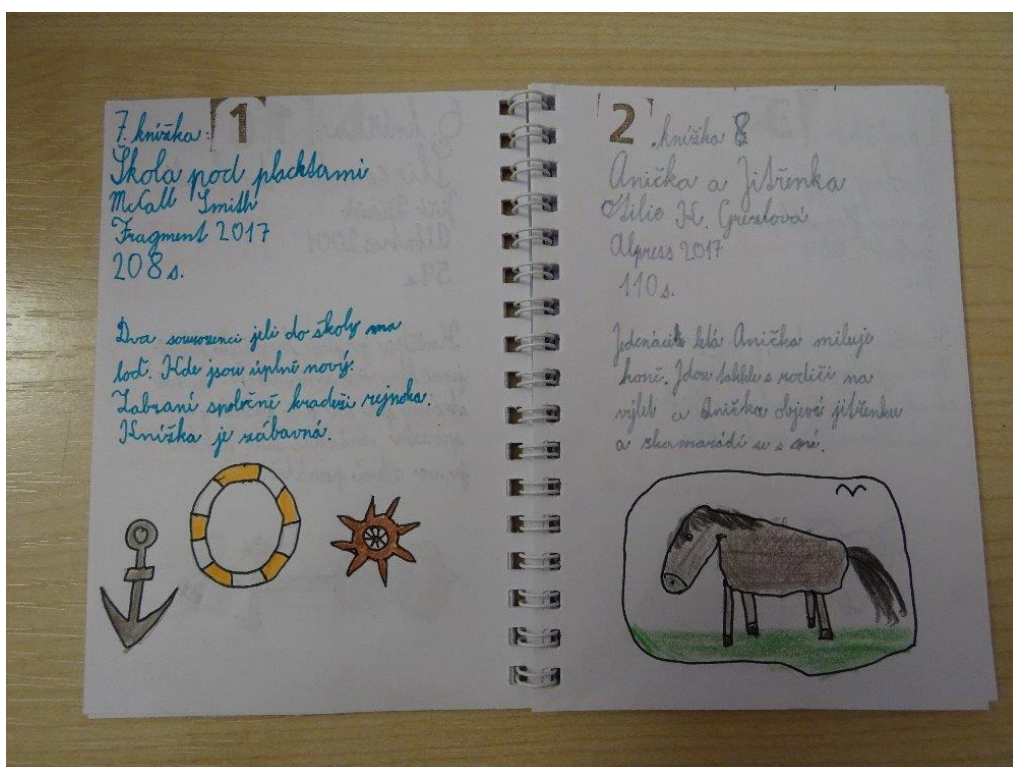 1
7. knížka:
Škola pod plachtami
McCall Smith
Fragment 2017
208 s.
Dva sourozenci jeli do školy na
loď. Kde jsou úplně nový.
Zabraní společně kradeži rejnoka.
Knížka je zábavná.
2
. knížka 8
Anička a Jitřenka
Otilie K. Grezlová
Alpress 2017
110 s.
Jedenácti letá Anička miluje
koně. Jdou takhle s rodiči na
výlet a Anička objeví jitřenku
a skamarádí se s